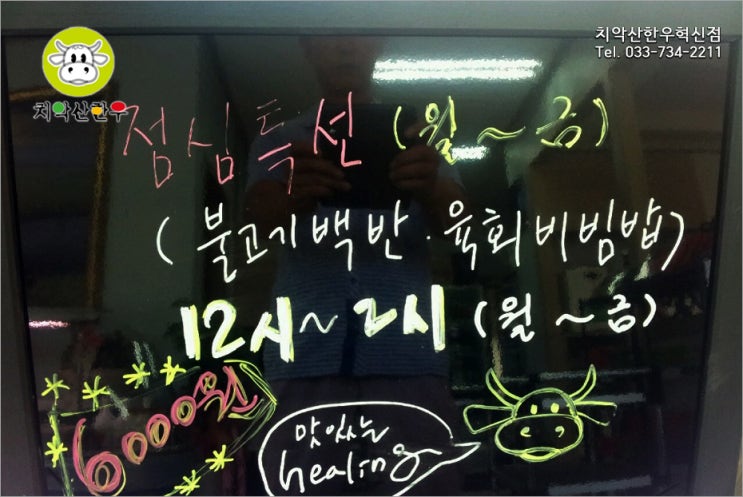 치악산한우혁신점
Tel. 033-734-2211
치악산한우
점심특선 (월 ~ 금)
(불고기백반 · 육회비빔밥)
12시 ~ 2시 (월 ~ 금)
6000원
맛있는
healing